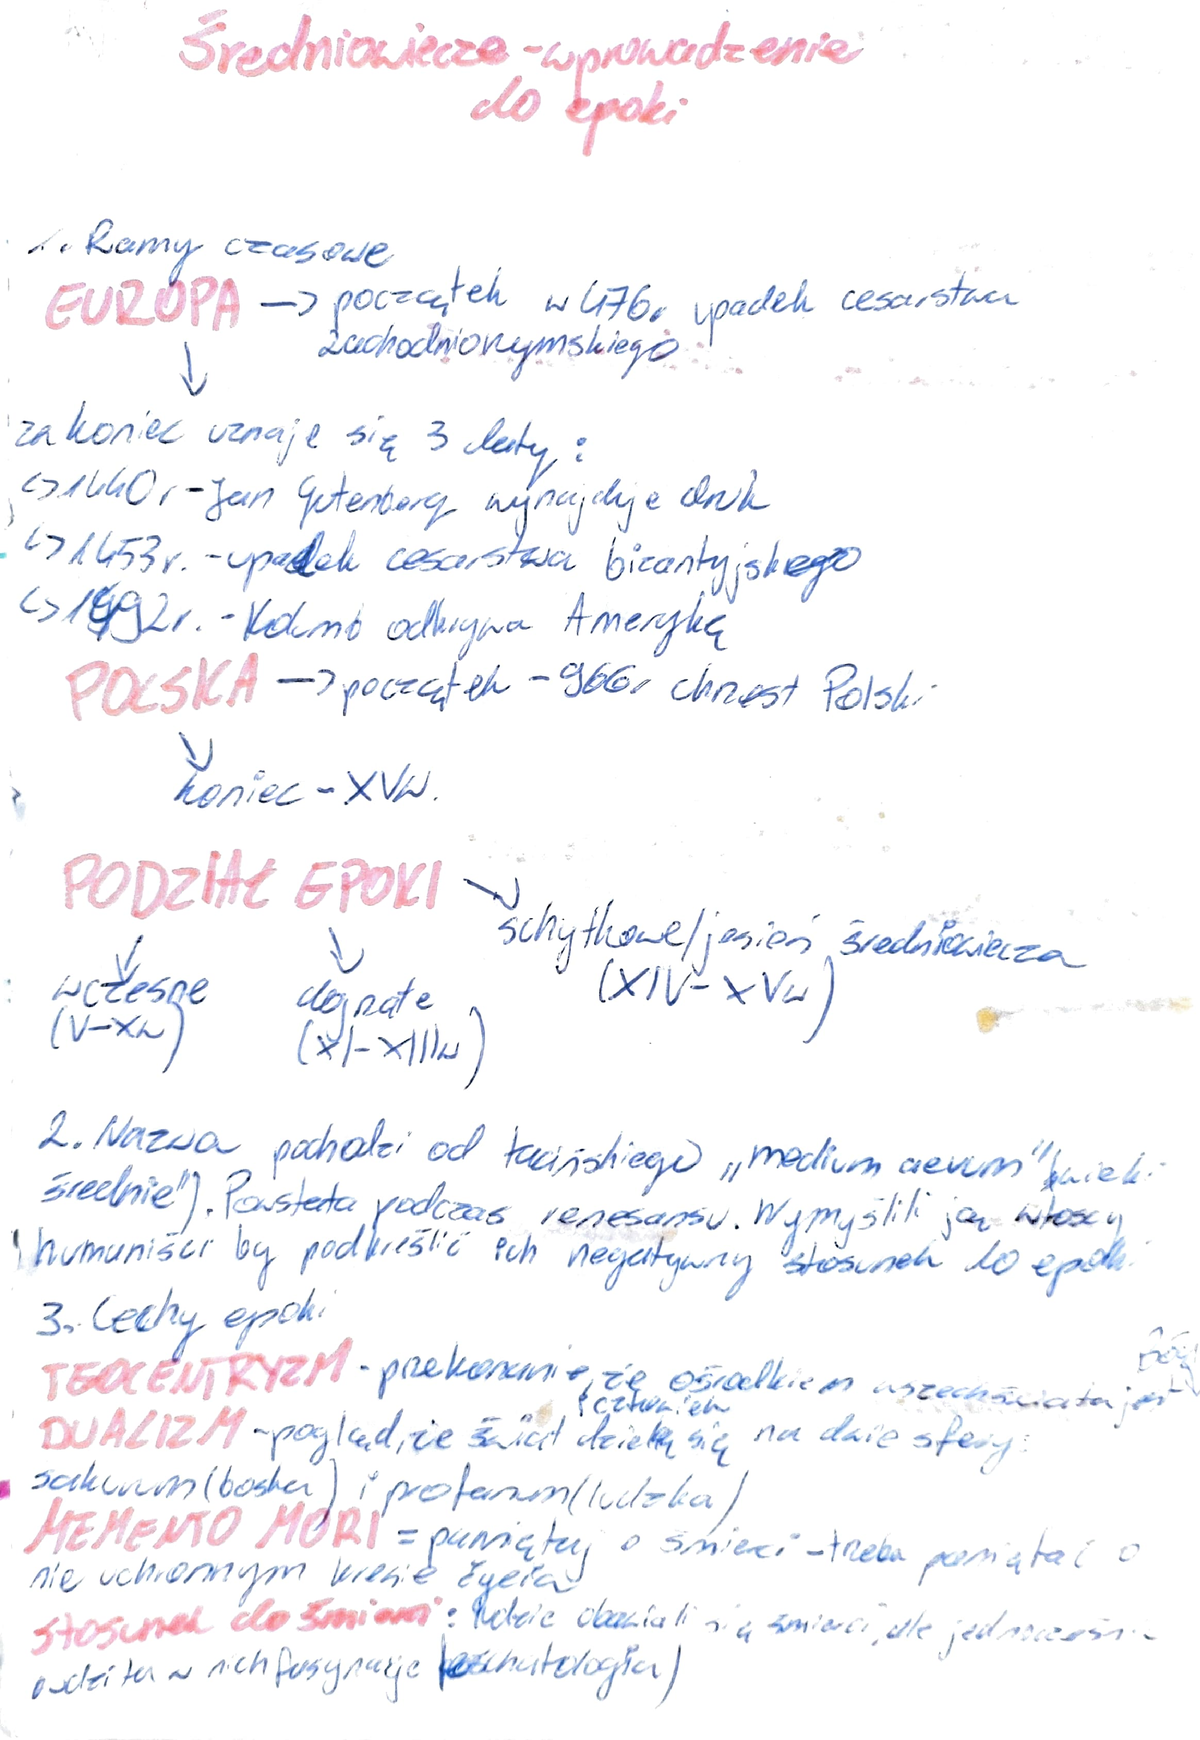 Średniowiecze - wprowadzenie
do epoki
1. Ramy czasowe
EUROPA -> początek w 476r upadek cesarstwa
zachodniorzymskiego
za koniec uznaje się 3 daty:
↳ 1440r - Jan Gutenberg wynajduje druk
↳ 1453r. - upadek cesarstwa bizantyjskiego
↳ 1492r. - Kolumb odkrywa Amerykę
POLSKA -> początek - 966r chrzest Polski
koniec - XVw.
PODZIAŁ EPOKI
schyłkowe/jesień średniowiecza
(XIV - XVw)
wczesne dojrzałe
(V-Xw) (XI-XIIIw)
2. Nazwa pochodzi od łacińskiego „medium aevum" (wieki
średnie"). Powstała podczas renesansu. Wymyślili ją włoscy
humaniści by podkreślić ich negatywny stosunek do epoki
3. Cechy epoki
TEOCENTRYZM - przekonanie, że ośrodkiem wszechświata jest Bóg
DUALIZM - pogląd, że świat i człowiek dzielą się na dwie sfery:
sakurum (boska) i profanum (ludzka)
MEMENTO MORI = pamiętaj o śmierci - trzeba pamiętać o
nieuchronnym kresie życia
stosunek do śmierci: ludzie obawiali się śmierci, ale jednocześnie
budziła w nich fascynację (eschatologia)